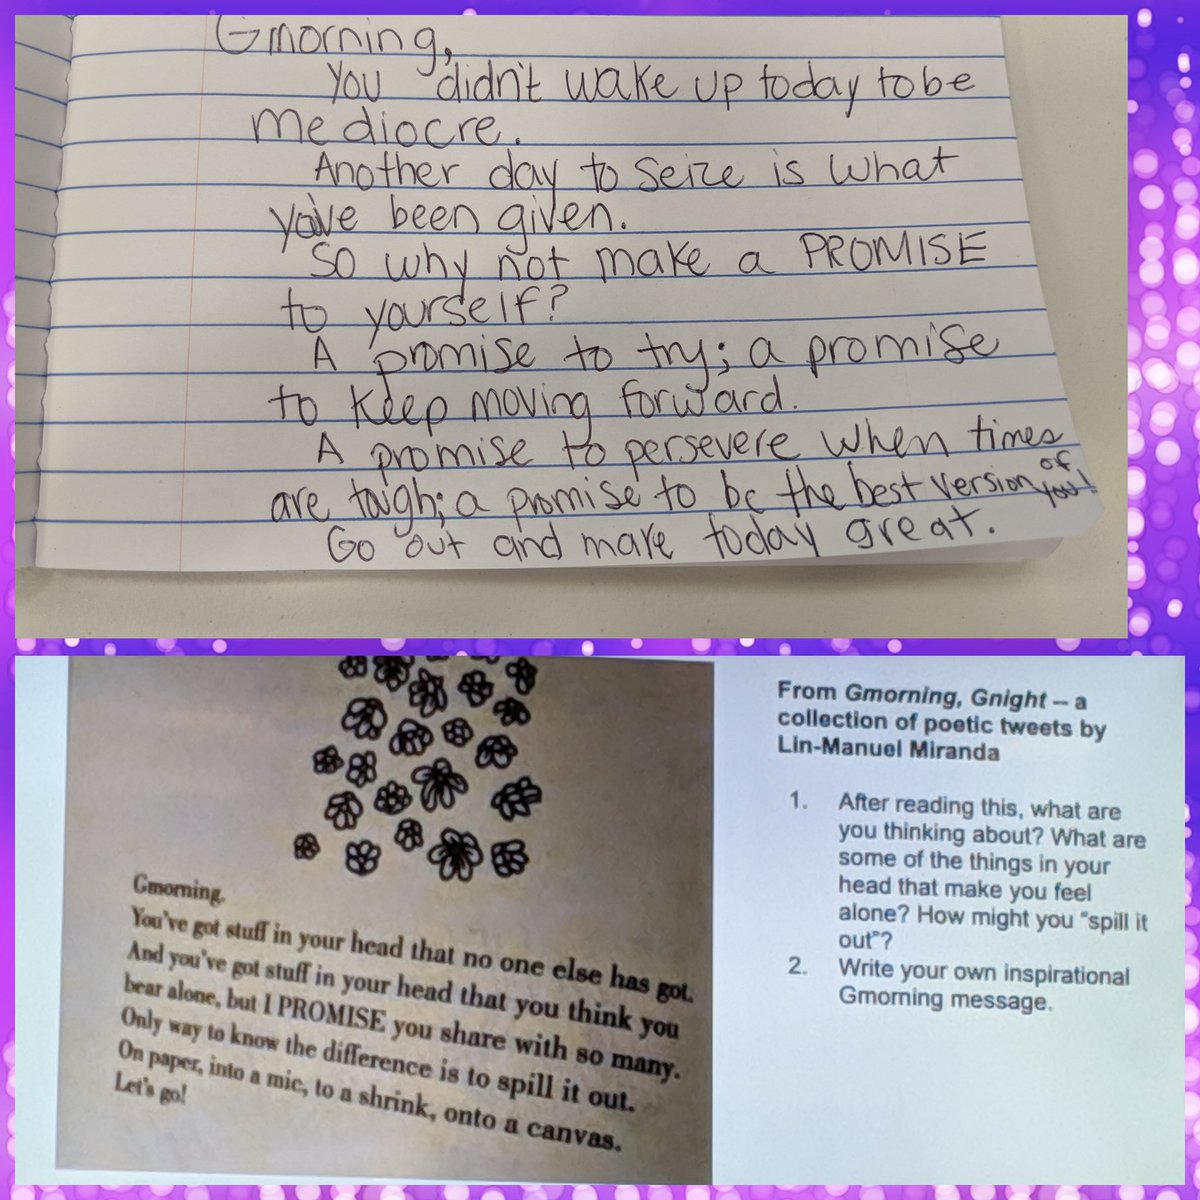 Gmorning,
You didn't wake up today to be
mediocre.
Another day to seize is what
you've been given.
So why not make a PROMISE
to yourself?
A promise to try; a promise
to keep moving forward.
A promise to persevere when times
are tough; a promise to be the best version of you!
Go out and make today great.
From Gmorning, Gnight – a
collection of poetic tweets by
Lin-Manuel Miranda
1. After reading this, what are
you thinking about? What are
some of the things in your
head that make you feel
alone? How might you "spill it
out"?
2. Write your own inspirational
Gmorning message.
Gmorning.
You've got stuff in your head that no one else has got.
And you've got stuff in your head that you think you
bear alone, but I PROMISE you share with so many.
Only way to know the difference is to spill it out.
On paper, into a mic, to a shrink, onto a canvas.
Let's go!